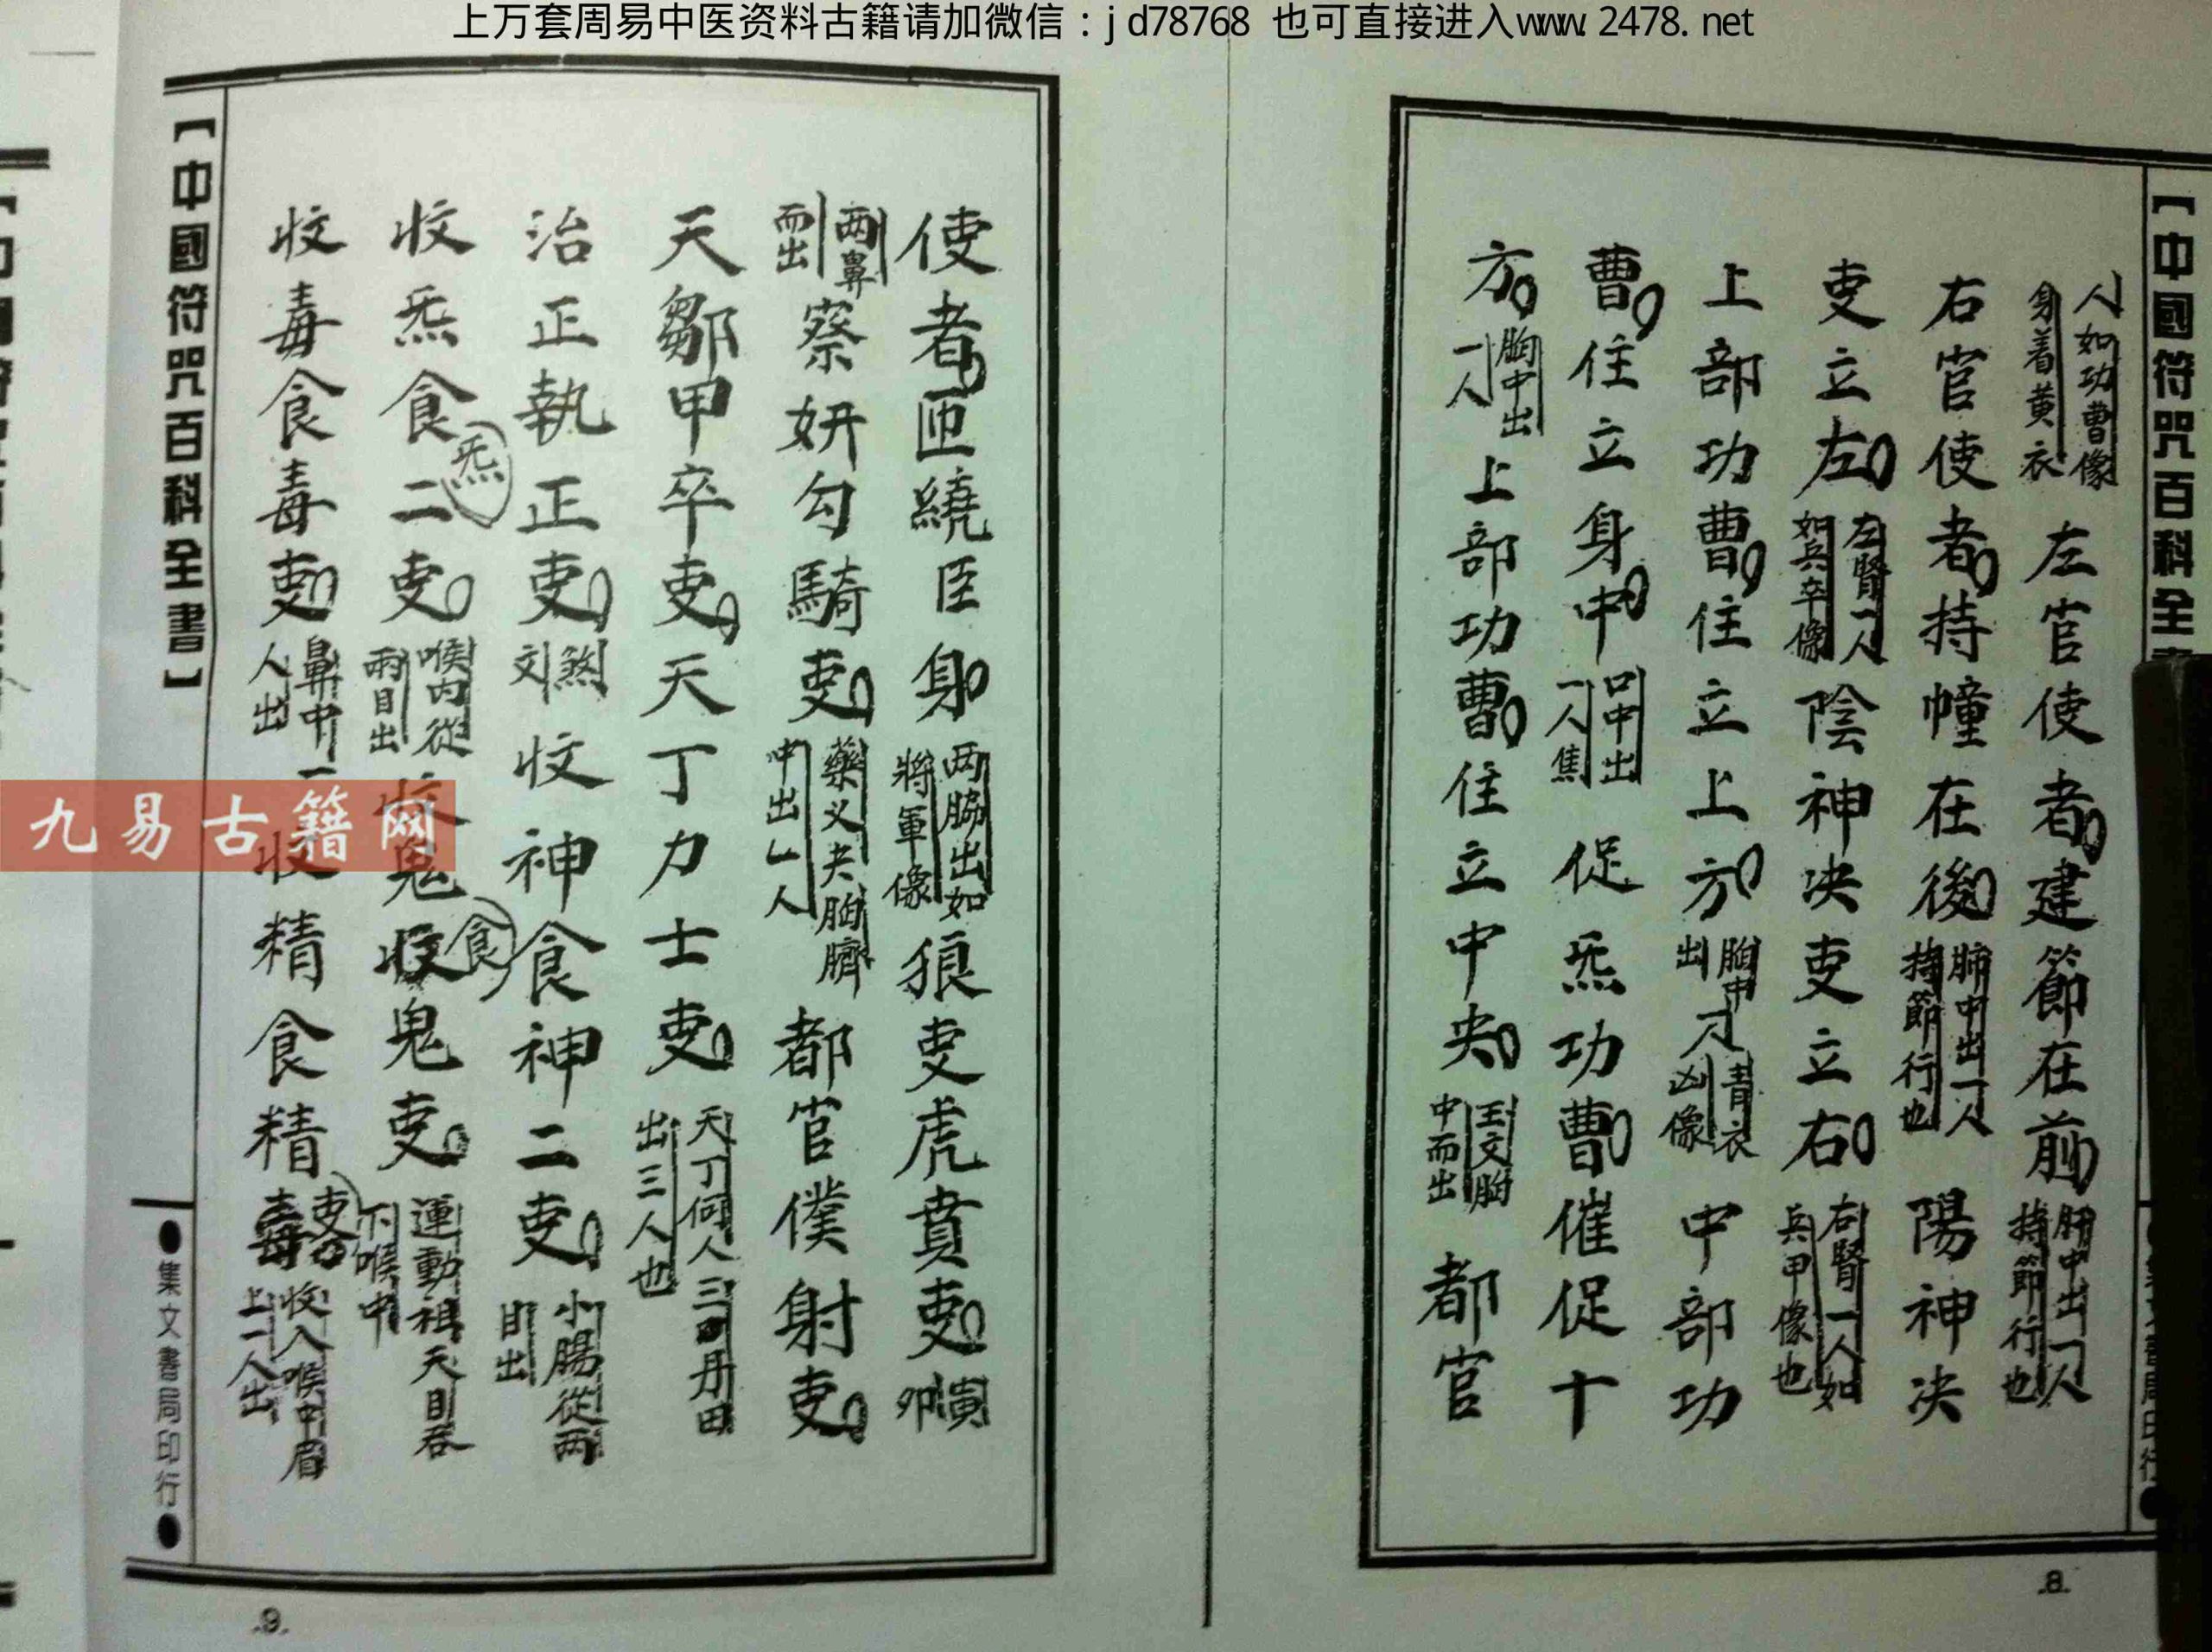 上万套周易中医资料古籍请加微信：jd78768 也可直接进入www.2478.net
【中國符咒百科全書
人如功曹像
身着黄衣
左官使者建節在前
肝中出一人
持節行也
右官使者持幢在後
肺中出一人
持節行也
陽神决
吏立左
左腎一人
如兵卒像
陰神决吏立右
右腎一人如
兵甲像也
上部功曹住立上方
胸中
出
青衣
像
中部功
曹住立身中
口中出
一人焦
促炁功曹催促十
方
胸中出
一人
上部功曹住立中央
王文胸
中而出
都官
.8.
使者匝繞臣身
两脇出如
將軍像
狼吏虎賁吏
寅
卯
两鼻
而出
察妍勾騎吏
藥义夫胸臍
中出一人
都官僕射吏
天鄒甲卒吏天丁力士吏
天丁何人三田丹田
出三人也
治正執正吏
煞
文
收神食神二吏
小腸從两
目出
收炁食炁二吏
喉内從
兩目出
收鬼食鬼吏
運動祖天目吞
下喉中
收毒食毒吏
鼻中一
人出
收精食精吏
收入喉中眉
上一人出
【中國符咒百科全書】
●集文書局印行●
.9.
九易古籍网